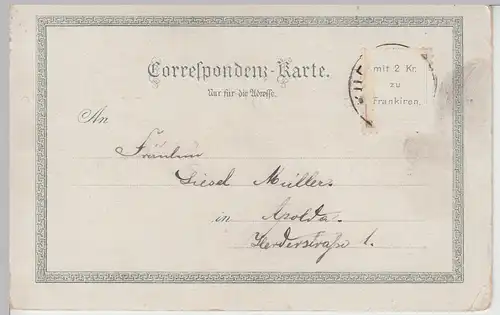 Correspondenz-Karte.
Nur für die Adresse.
mit 2 Kr.
zu
Frankiren.
An
Fräulein
Liesel Müller
in Apolda.
Herderstraße 1.